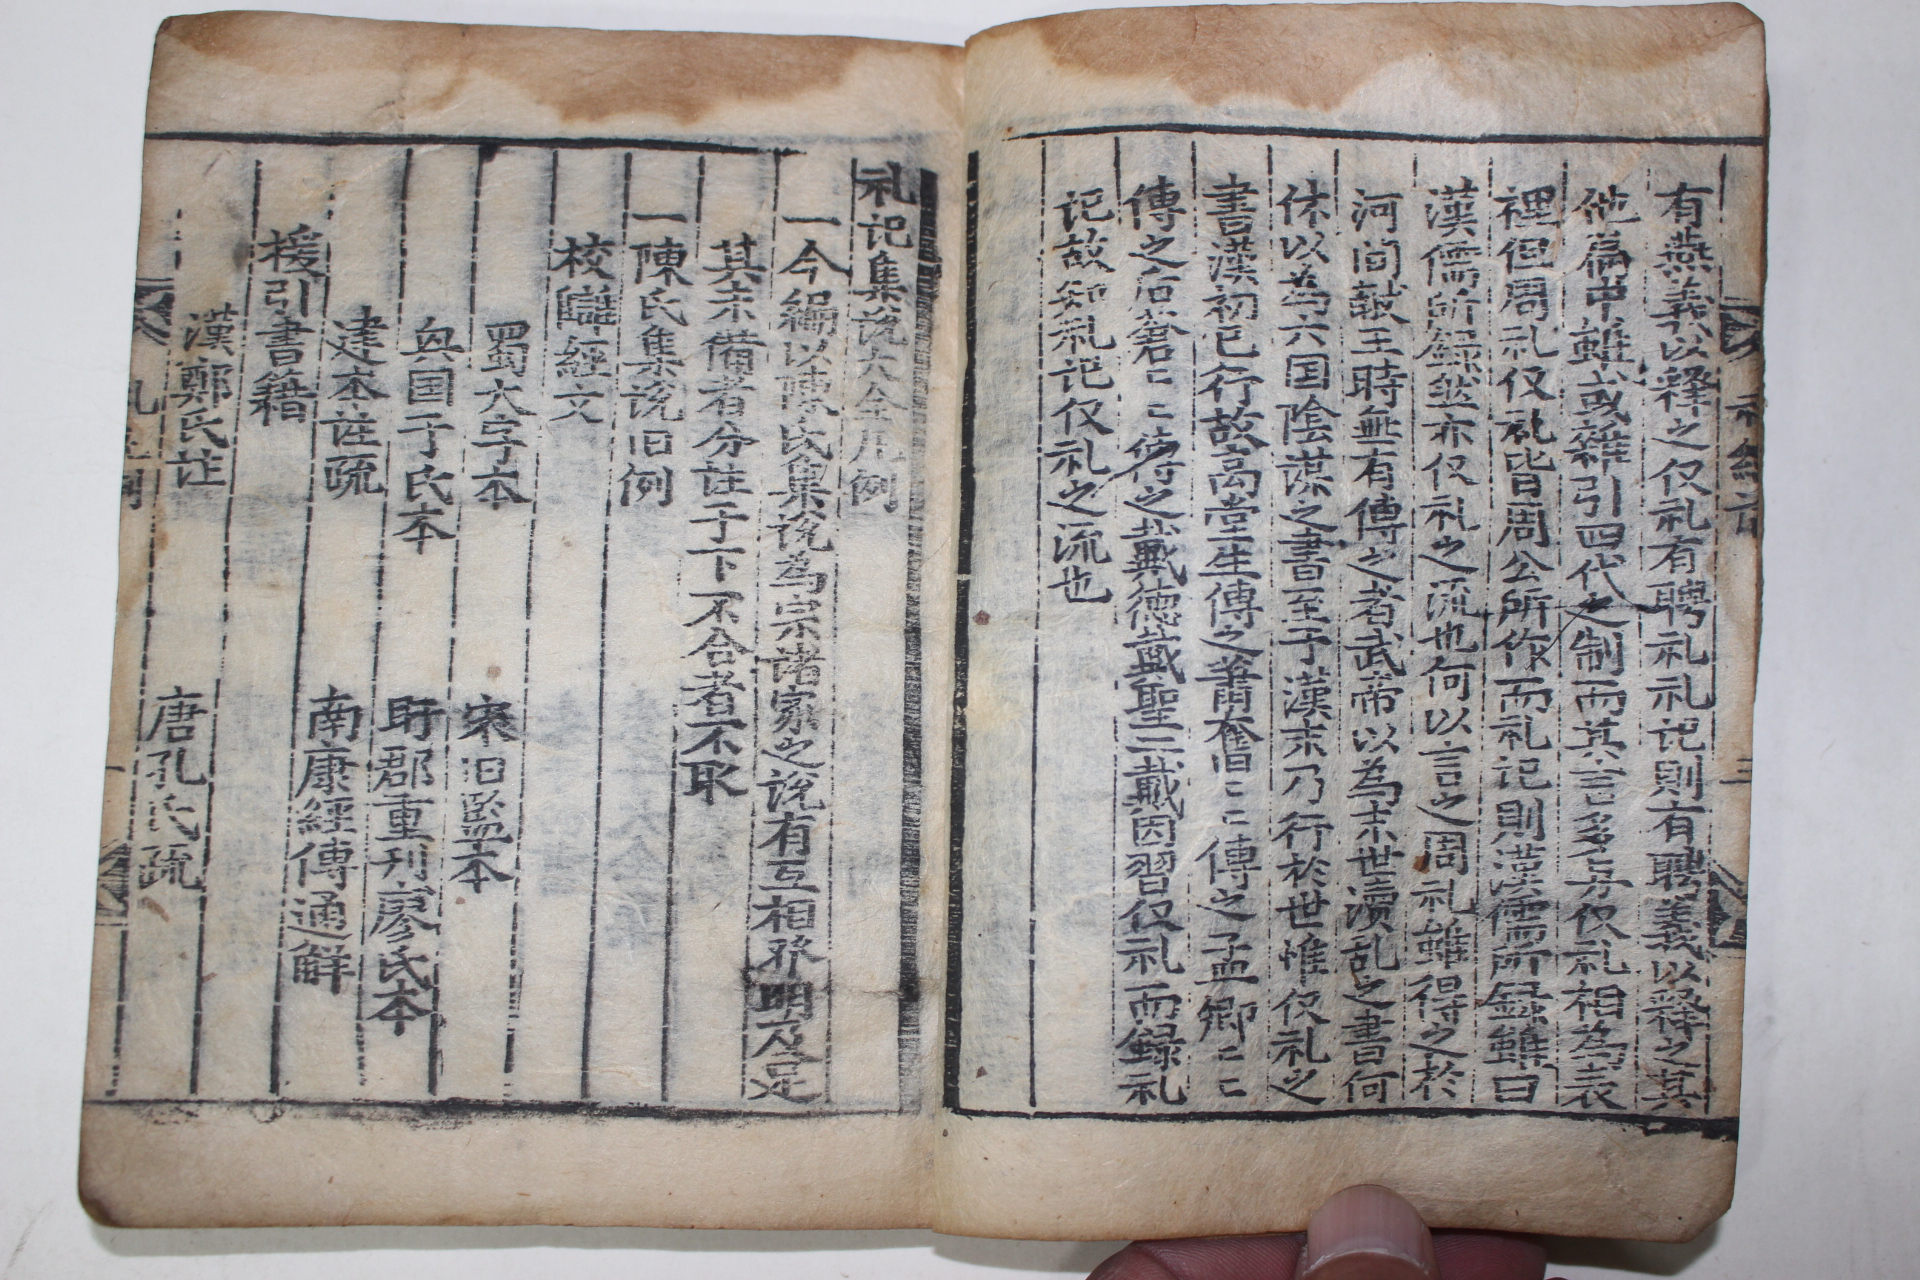 有燕義以释之仅礼有聘礼礼记則有聘義以释之其
他篇中雖或雜引四代之制而其言多与仅礼相為表
裡但周礼仅礼皆周公所作而礼记則漢儒所録雖曰
漢儒所録然亦仅礼之流也何以言之周礼雖得之於
河间献王時無有傳之者武帝以為末世瀆乱之書何
休以為六国陰謀之書至于漢末乃行於世惟仅礼之
書漢初已行故高堂生傳之蕭奮〻〻傳之孟卿〻〻
傳之后蒼〻〻傳之戴德戴聖二戴因習仅礼而録礼
记故知礼记仅礼之流也
礼记集说大全凡例
一今編以陳氏集说為宗諸家之说有互相發明及足
其未備者分註于下不合者不取
一陳氏集说旧例
校讎經文
蜀大字本 宋旧監本
興国于氏本 盱郡重刊廖氏本
建本註疏 南康經傳通解
援引書籍
漢鄭氏註 唐孔氏疏